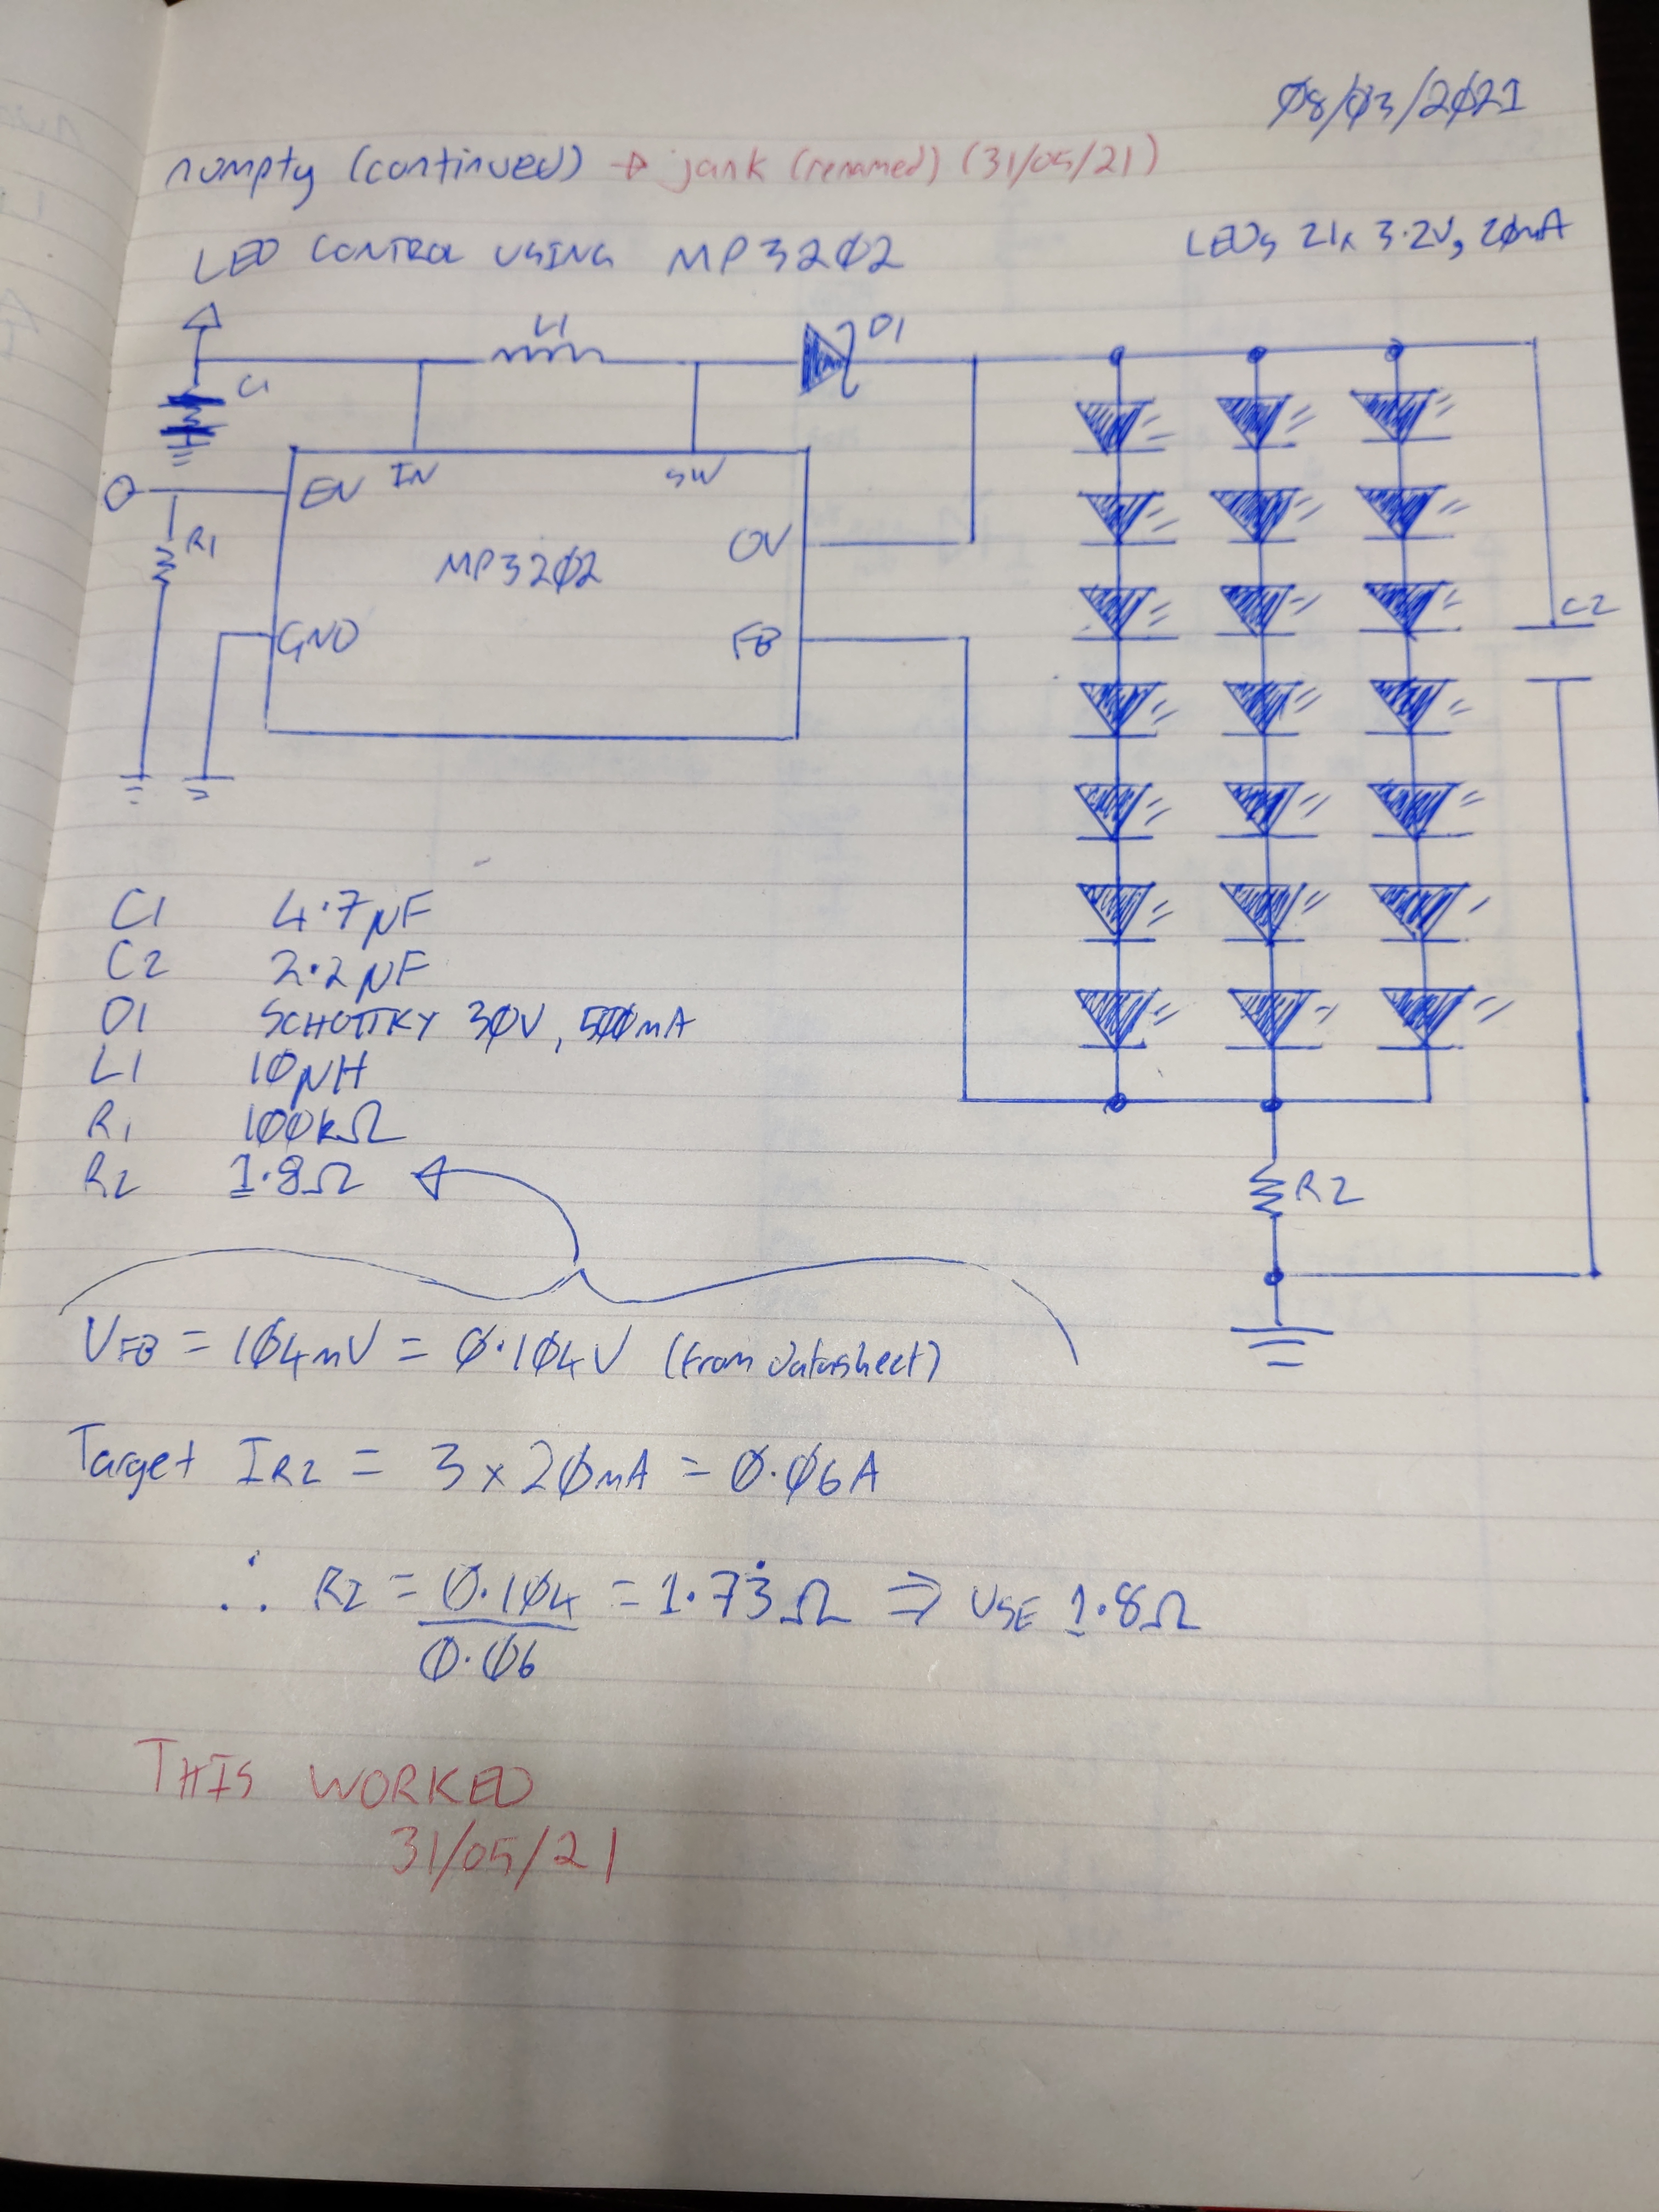 08/03/2021
numpty (continued) → jank (renamed) (31/05/21)
LED CONTROL USING MP3202
LEDs 21x 3.2V, 20mA
L1
D1
C1
EN
IN
SW
R1
MP3202
OV
GND
FB
C2
C1 4.7µF
C2 2.2µF
D1 SCHOTTKY 30V, 500mA
L1 10µH
R1 100kΩ
R2 1.8Ω
R2
VFB = 104mV = 0.104V (from datasheet)
Target IR2 = 3 x 20mA = 0.06A
∴ R2 = 0.104 = 1.73̇Ω ⇒ USE 1.8Ω
0.06
THIS WORKED
31/05/21